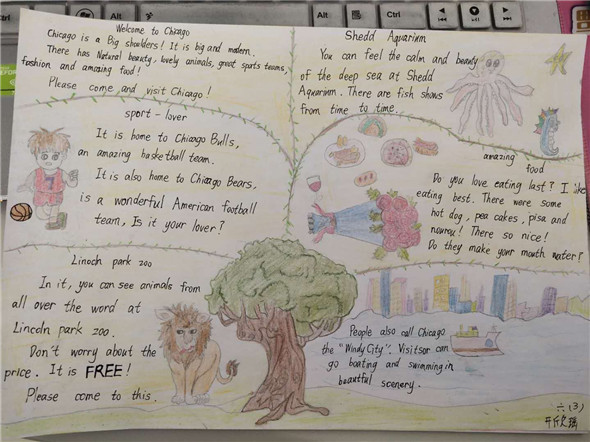 Welcome to Chicago
Chicago is a Big shoulders! It is big and modern.
There has Natural beauty, lovely animals, great sports teams,
fashion and amazing food!
Please come and visit Chicago!
Shedd Aquarium
You can feel the calm and beauty
of the deep sea at Shedd
Aquarium. There are fish shows
from time to time.
sport-lover
It is home to Chicago Bulls,
an amazing basketball team.
It is also home to Chicago Bears,
is a wonderful American football
team, Is it your lover?
amazing
food
Do you love eating last? I like
eating best. There were some
hot dog, pea cakes, pisa and
There so nice!
Do they make your mouth water?
Lincoln park zoo
In it, you can see animals from
all over the word at
Lincoln park zoo.
Don't worry about the
price. It is FREE!
Please come to this.
People also call Chicago
the "Windy City". Visitsor can
go boating and swimming in
beautiful scenery.
六(3)
Alt
Ctrl
Alt
Ctrl